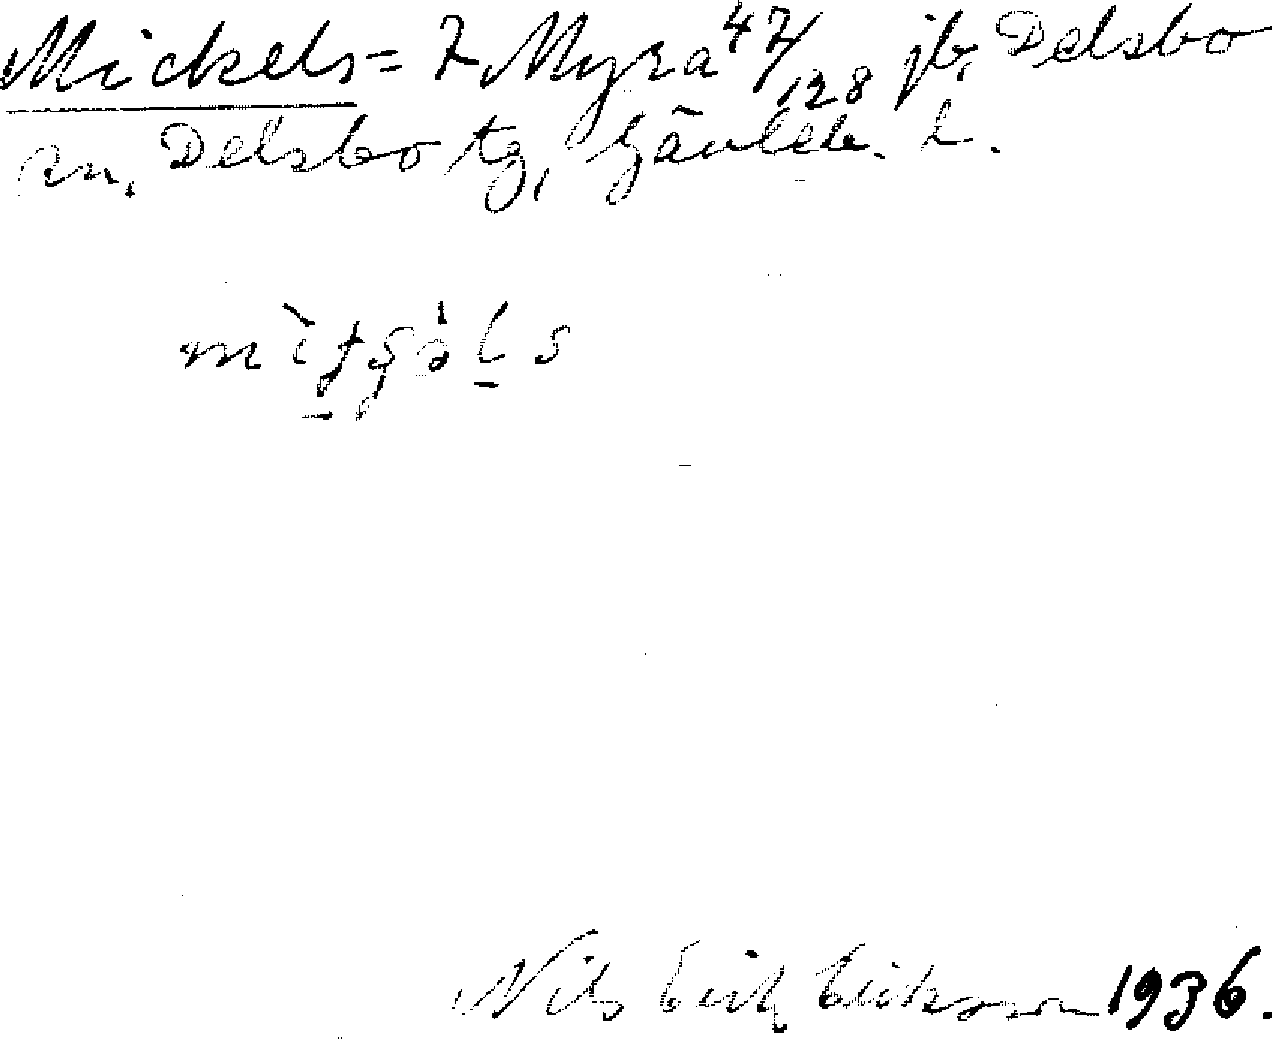 Mickels = 7 Myra 47/128 jb, Delsbo
sn, Delsbo tg, Gävleb. l.
Nils Erik Eriksson 1936.